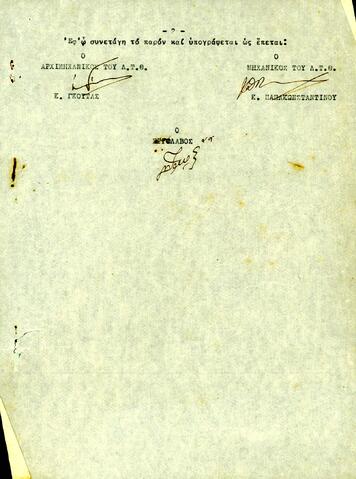 - 2 -
Ἐφ'ᾧ συνετάγη τό παρόν καί ὑπογράφεται ὡς ἕπεται:
Ο
ΑΡΧΙΜΗΧΑΝΙΚΟΣ ΤΟΥ Λ.Τ.Θ.
Κ. ΓΚΟΥΤΑΣ
Ο
ΜΗΧΑΝΙΚΟΣ ΤΟΥ Λ.Τ.Θ.
Κ. ΠΑΠΑΚΩΝΣΤΑΝΤΙΝΟΥ
Ο
ΕΡΓΟΛΑΒΟΣ